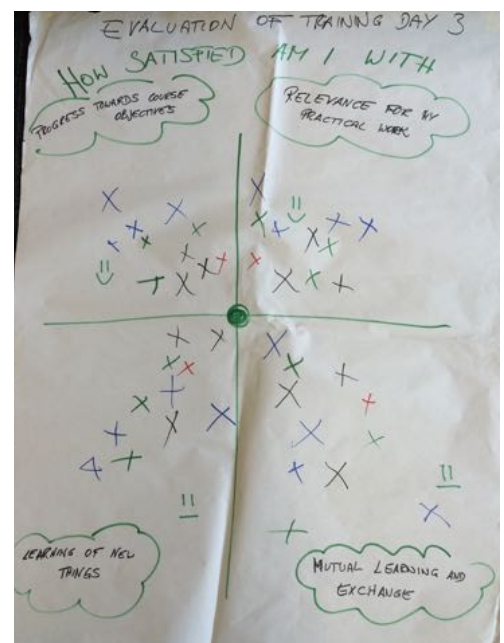 EVALUATION OF TRAINING DAY 3
HOW SATISFIED AM I WITH
PROGRESS TOWARDS COURSE
OBJECTIVES
RELEVANCE FOR MY
PRACTICAL WORK
LEARNING OF NEW
THINGS
MUTUAL LEARNING AND
EXCHANGE